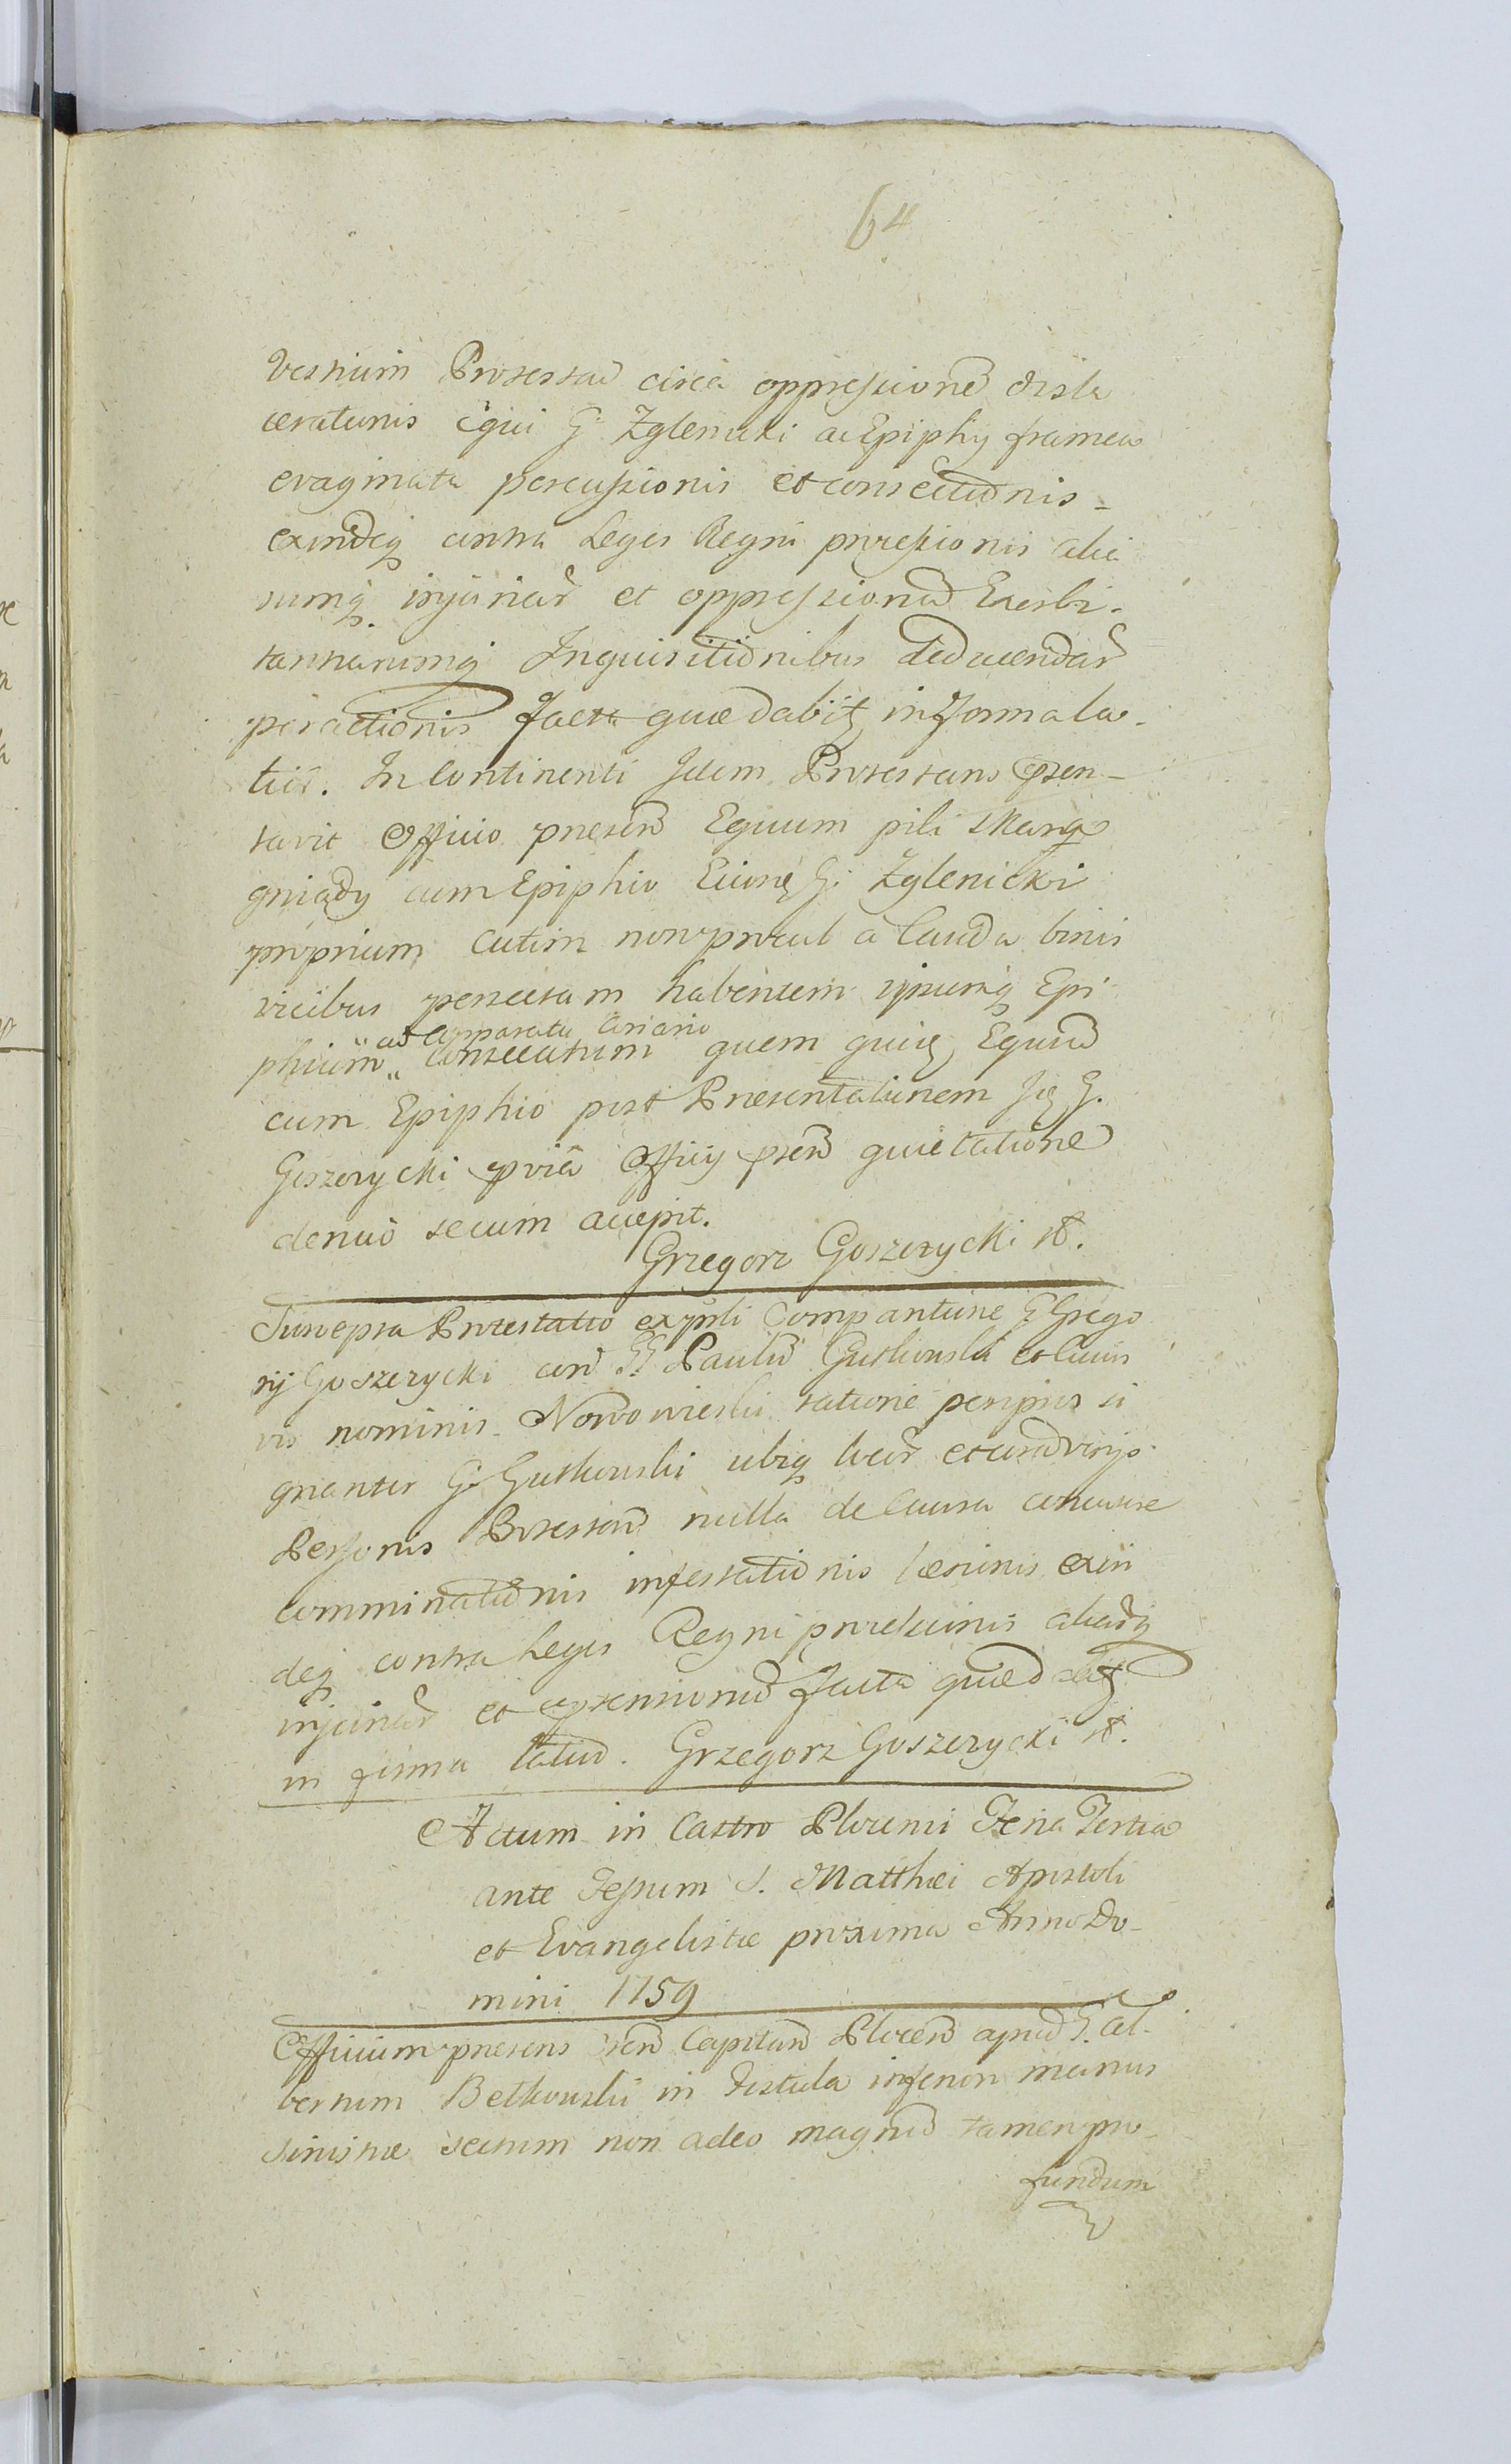 64
vestium Protestan̄ circa oppressionē disla
cerationis equi G. Zglenicki ac Epiphij framea
evaginata percussionis et consectionis
exindeq̃ contra Leges Regni processionis alia
rumq̃ injuriar̄ et oppressionū Exorbi-
tantiarumq̃ Inquisitionibus deducendar̄
peractionis facta quæ dabit̃ in forma la-
tiõr. In continenti Idem Protestans p̄sen-
tavit Officio præsen̄ Equum pili skaro
gniady cum Epiphio Eiusd̃ G. Zglenicki
proprium Cutim non procul a Cauda binis
vicibus persectam habentem ipsumq̃ Epi
phium consecatum quem quid̃ Equum
cum Epiphio post Præsentationem Id̃ G.
Goszczycki prævia Officij p̄sen̄ quietatione
denuo secum accepit.
Grzegorz Goszczycki
Suscepta Protestatio ex p̄nli Comparitione G. Grego
rij Goszczycki con̄ GG. Paulum Gutkowski et Civis
vis nominis Nowowieski ratione per ipsos si
gnanter G. Gutkowski ubiq̃ locor̄ et cum diversis
Personis Protestan̄ nulla de Causa
comminationis infestationis læsionis exin
deq̃ contra Leges Regni processionis aliarq̃
injuriar̄ et oppressionū facta quæ dabit̃
in forma latiori. Grzegorz Goszczycki
Actum in Castro Plocensi Feria Tertia
ante Festum S. Matthæi Apostoli
et Evangelistæ proxima Anno Do-
mini 1759
Officium præsens Cap̃itan̄ Plocen̄ apud G. Al-
bertum Betkowski in Fistula inferiori manus
sinistræ sectum non adeo magnum tamen pro-
fundum